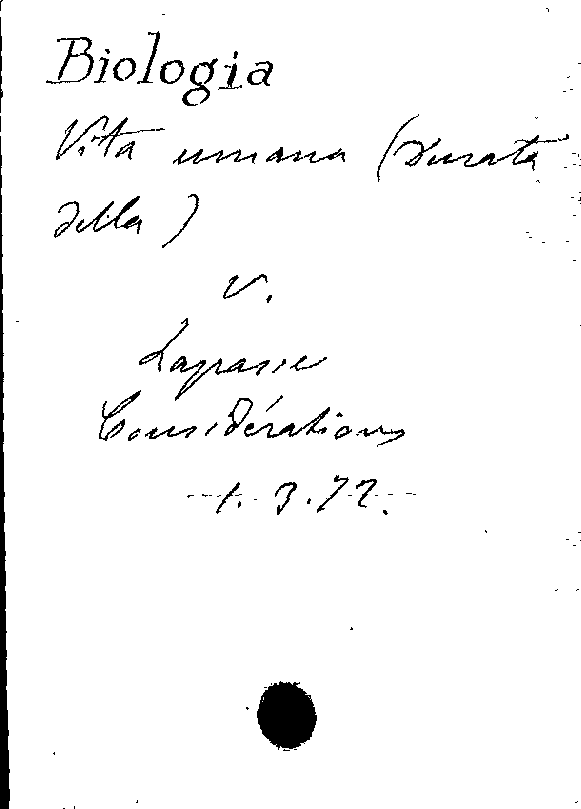 Biologia
Vita umana (Durata
della)
V.
Lapasse
Considérations
1.3.72.